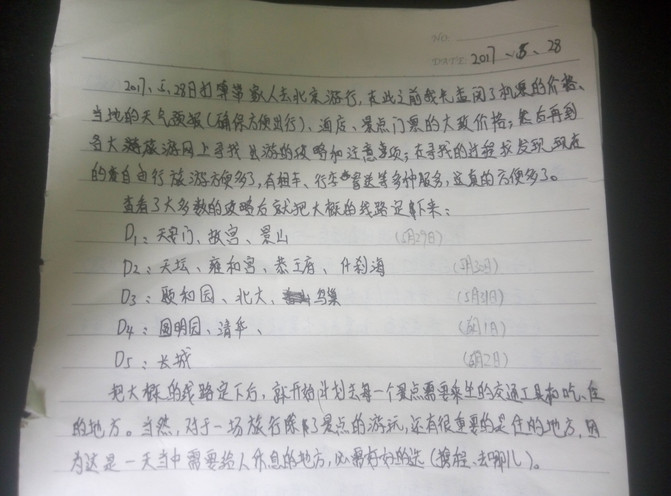 NO.
DATE 2017、5、28
2017、5、28日打算带家人去北京游行,在此之前我先查阅了机票的价格、
当地的天气预报(确保方便出行)、酒店、景点门票的大致价格;然后再到
各大旅游网上寻找出游的攻略和注意事项;在寻找的过程我发现现在
的自由行旅游方便多了,有租车、行李寄送等多种服务,这真的方便多了。
查看了大多数的攻略后就把大概的线路定下来:
D1:天安门、故宫、景山 (5月29日)
D2:天坛、雍和宫、恭王府、什刹海 (5月30日)
D3:颐和园、北大、鸟巢 (5月31日)
D4:圆明园、清华、 (6月1日)
D5:长城 (6月2日)
把大概的线路定下后,就开始计划去每一个景点需要乘坐的交通工具和吃、住
的地方。当然,对于一场旅行除了景点的游玩,还有很重要的是住的地方,因
为这是一天当中需要给人休息的地方,必需好好的选(携程、去哪儿)。